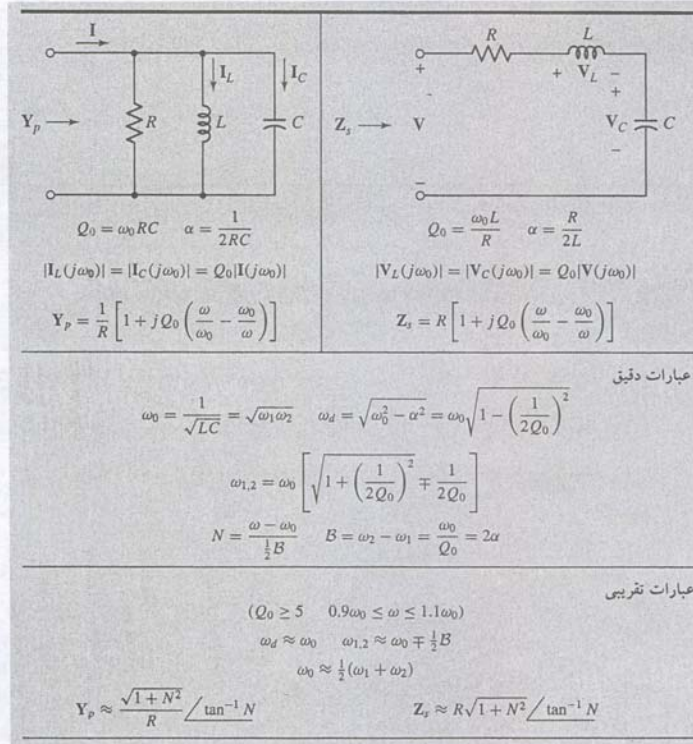 I
I_L
I_C
Y_p
R
L
C
Q_0 = ω_0RC α = \frac{1}{2RC}
|I_L(jω_0)| = |I_C(jω_0)| = Q_0|I(jω_0)|
Y_p = \frac{1}{R} [1 + jQ_0 (\frac{ω}{ω_0} − \frac{ω_0}{ω})]
R
L
+
+ V_L −
+
Z_s
V
V_C
C
−
−
Q_0 = \frac{ω_0L}{R} α = \frac{R}{2L}
|V_L(jω_0)| = |V_C(jω_0)| = Q_0|V(jω_0)|
Z_s = R [1 + jQ_0 (\frac{ω}{ω_0} − \frac{ω_0}{ω})]
عبارات دقیق
ω_0 = \frac{1}{\sqrt{LC}} = \sqrt{ω_1ω_2} ω_d = \sqrt{ω_0^2 − α^2} = ω_0\sqrt{1 − (\frac{1}{2Q_0})^2}
ω_{1,2} = ω_0 [\sqrt{1 + (\frac{1}{2Q_0})^2} ∓ \frac{1}{2Q_0}]
N = \frac{ω − ω_0}{\frac{1}{2}B} B = ω_2 − ω_1 = \frac{ω_0}{Q_0} = 2α
عبارات تقریبی
(Q_0 ≥ 5 0.9ω_0 ≤ ω ≤ 1.1ω_0)
ω_d ≈ ω_0 ω_{1,2} ≈ ω_0 ∓ \frac{1}{2}B
ω_0 ≈ \frac{1}{2}(ω_1 + ω_2)
Y_p ≈ \frac{\sqrt{1 + N^2}}{R} ∠tan^{-1} N Z_s ≈ R\sqrt{1 + N^2} ∠tan^{-1} N